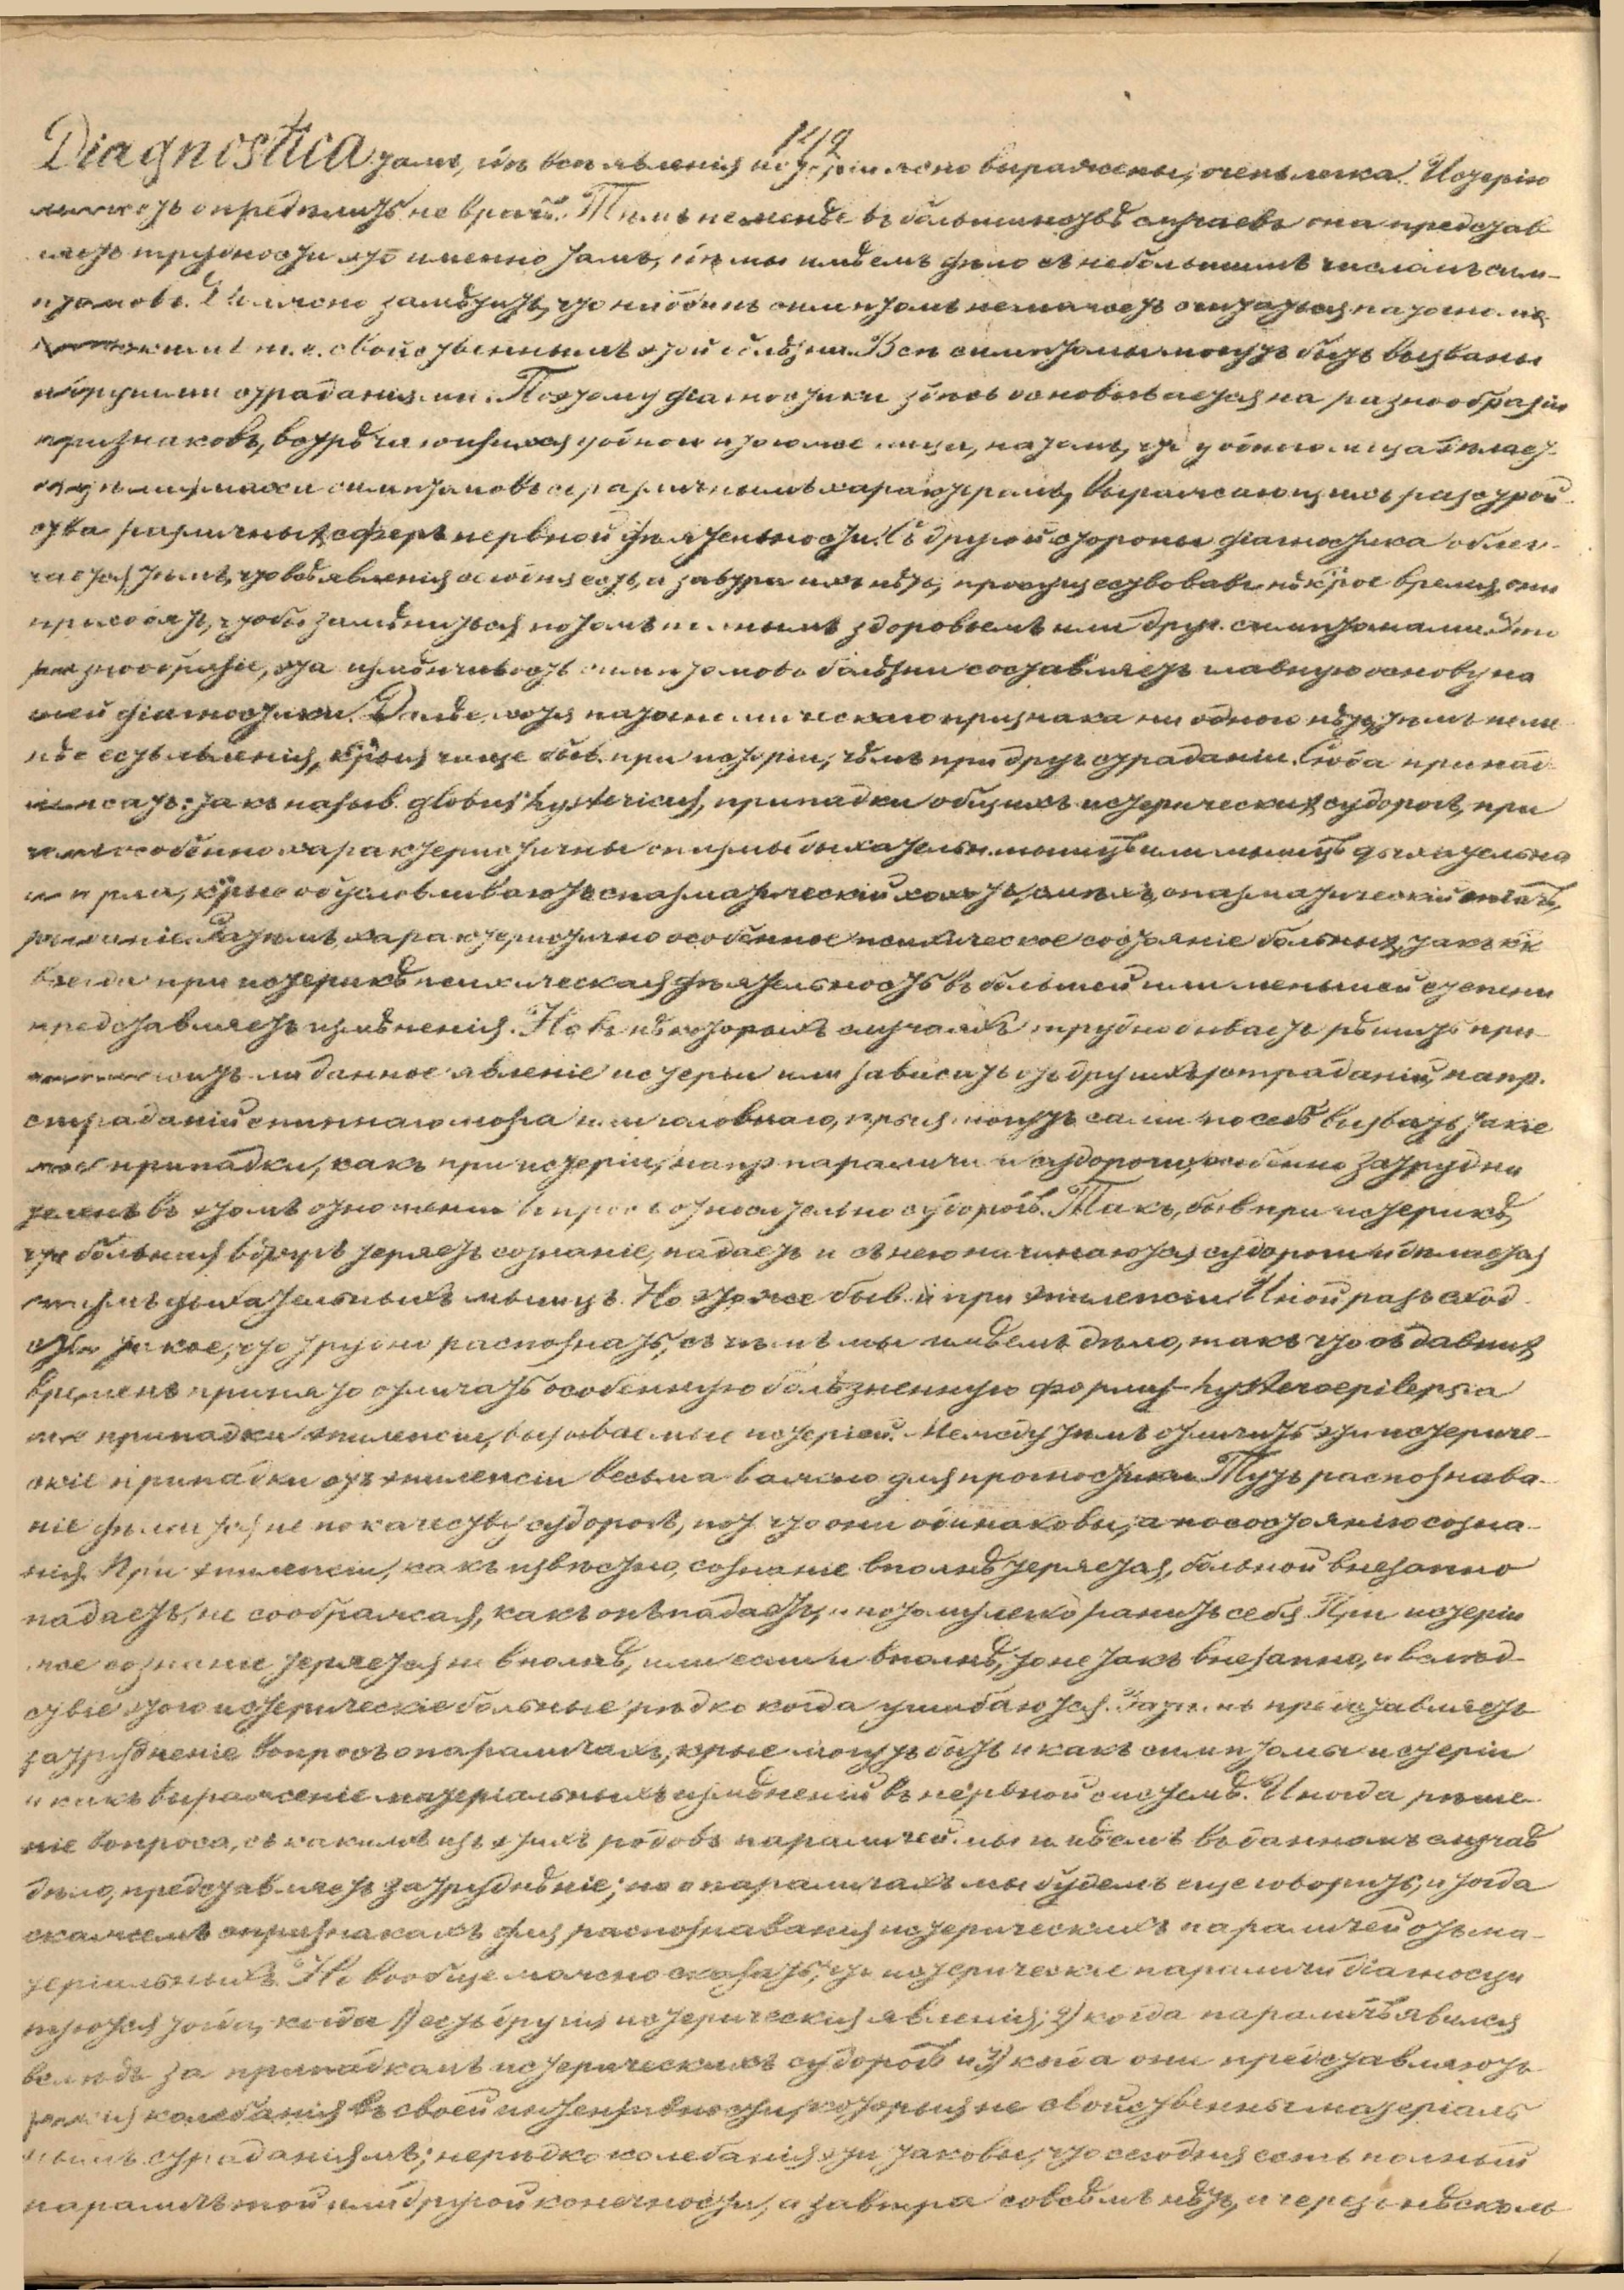 142
Diagnostica тамъ, гдѣ всѣ явленія истеріи ясно выражены, очень легка. Истерію
можетъ опредѣлить не врачъ. Тѣмъ не менѣе въ большинствѣ случаевъ она представ
ляетъ трудности и это именно тамъ, гдѣ мы имѣемъ дѣло съ небольшимъ числомъ сим-
птомовъ. Должно замѣтить, что ни одинъ симптомъ не можетъ считаться патогно
т. е. свойственнымъ этой болѣзни. Всѣ симптомы могутъ быть вызваны
и другими страданіями. Поэтому діагностика здѣсь основывается на разнообразіи
признаковъ, встрѣчающихся у одного и того же лица, на томъ, что у одного лица бываетъ
симптомовъ съ различнымъ характеромъ, выражающихъ разстрой
ства различныхъ сферъ нервной дѣятельности. Съ другой стороны діагностика облег-
чается тѣмъ, что всѣ явленія сегодня есть, а завтра ихъ нѣтъ, просуществовавъ нѣк̃рое время, они
проходятъ, чтобы замѣниться потомъ полнымъ здоровьемъ или друг. симптомами. Это
разнообразіе, эта измѣнчивость симптомовъ болѣзни составляетъ главную основу на
шей діагностики. Далѣе, хотя патогномическаго признака ни одного нѣтъ, тѣмъ не ме
нѣе есть явленія, к̃рыя чаще быв. при истеріи, чѣмъ при друг. страданіи. Сюда принад
лежатъ: такъ назыв. globus hystericus, припадки общихъ истерическихъ судорогъ, при
чемъ особенно характеристичны спазмы дыхательн. мышцъ или мышцъ дыхательна
го горла, к̃рые обусловливаютъ спазматическій хохотъ, смѣхъ, спазматическій плачъ,
рыданіе. Затѣмъ, характеристично особенное психическое состояніе больныхъ, такъ к̃к
всегда при истерикѣ психическая дѣятельность въ большей или меньшей степени
представляетъ измѣненія. Но въ нѣкоторыхъ случаяхъ трудно бываетъ рѣшить при-
ли данное явленіе истеріи или зависитъ отъ другихъ страданій, напр.
страданій спиннаго мозга или головнаго, к̃рыя могутъ сами по себѣ вызвать такіе
же припадки, какъ при истеріи, напр. параличи и судороги, особенно затрудни
теленъ въ этомъ отношеніи вопросъ относительно судорогъ. Такъ, быв. при истерикѣ,
что больная вдругъ теряетъ сознаніе, падаетъ и съ нею начинаются судороги и дѣлается
спазмъ дыхательныхъ мышцъ. Но это же быв. и при эпилепсіи. Иной разъ сход
ство такое, что трудно распознать, съ чѣмъ мы имѣемъ дѣло, такъ что съ давнихъ
временъ принято отличать особенную болѣзненную форму – hysteroepilepsia
или припадки эпилепсіи, вызываемые истеріей. Между тѣмъ отличить эти истериче-
скіе припадки отъ эпилепсіи весьма важно для прогностики. Тутъ распознава-
ніе дѣлается не по качеству судорогъ, пот. что они одинаковы, а по состоянію созна-
нія. При эпилепсіи, какъ извѣстно, сознаніе вполнѣ теряется, больной внезапно
падаетъ, не соображая, какъ онъ падаетъ, и потому легко ранитъ себя. При истеріи
же сознаніе теряется не вполнѣ, или если и вполнѣ, то не такъ внезапно, и вслѣд-
ствіе этого истерическіе больные рѣдко когда ушибаются. Затѣмъ представляетъ
затрудненіе вопросъ о параличахъ, к̃рые могутъ быть и какъ симптомы истеріи
и какъ выраженіе матеріальныхъ измѣненій въ нервной системѣ. Иногда рѣше-
ніе вопроса, съ какимъ изъ этихъ родовъ параличей мы имѣемъ въ данномъ случаѣ
дѣло, представляетъ затрудненіе; но о параличахъ мы будемъ еще говорить, и тогда
скажемъ о признакахъ для распознаванія истерическихъ параличей отъ ма-
теріальныхъ. Но вообще можно сказать, что истерическіе параличи діагности
руются тогда, когда 1) есть другія истерическія явленія; 2) когда параличъ явился
вслѣдъ за припадкомъ истерическихъ судорогъ и 3) когда они представляютъ
колебанія въ своей интензивности, которыя не свойственны матеріаль
нымъ страданіямъ; нерѣдко колебанія эти таковы, что сегодня есть полный
параличъ той или другой конечности, а завтра совсѣмъ нѣтъ, и черезъ нѣсколь